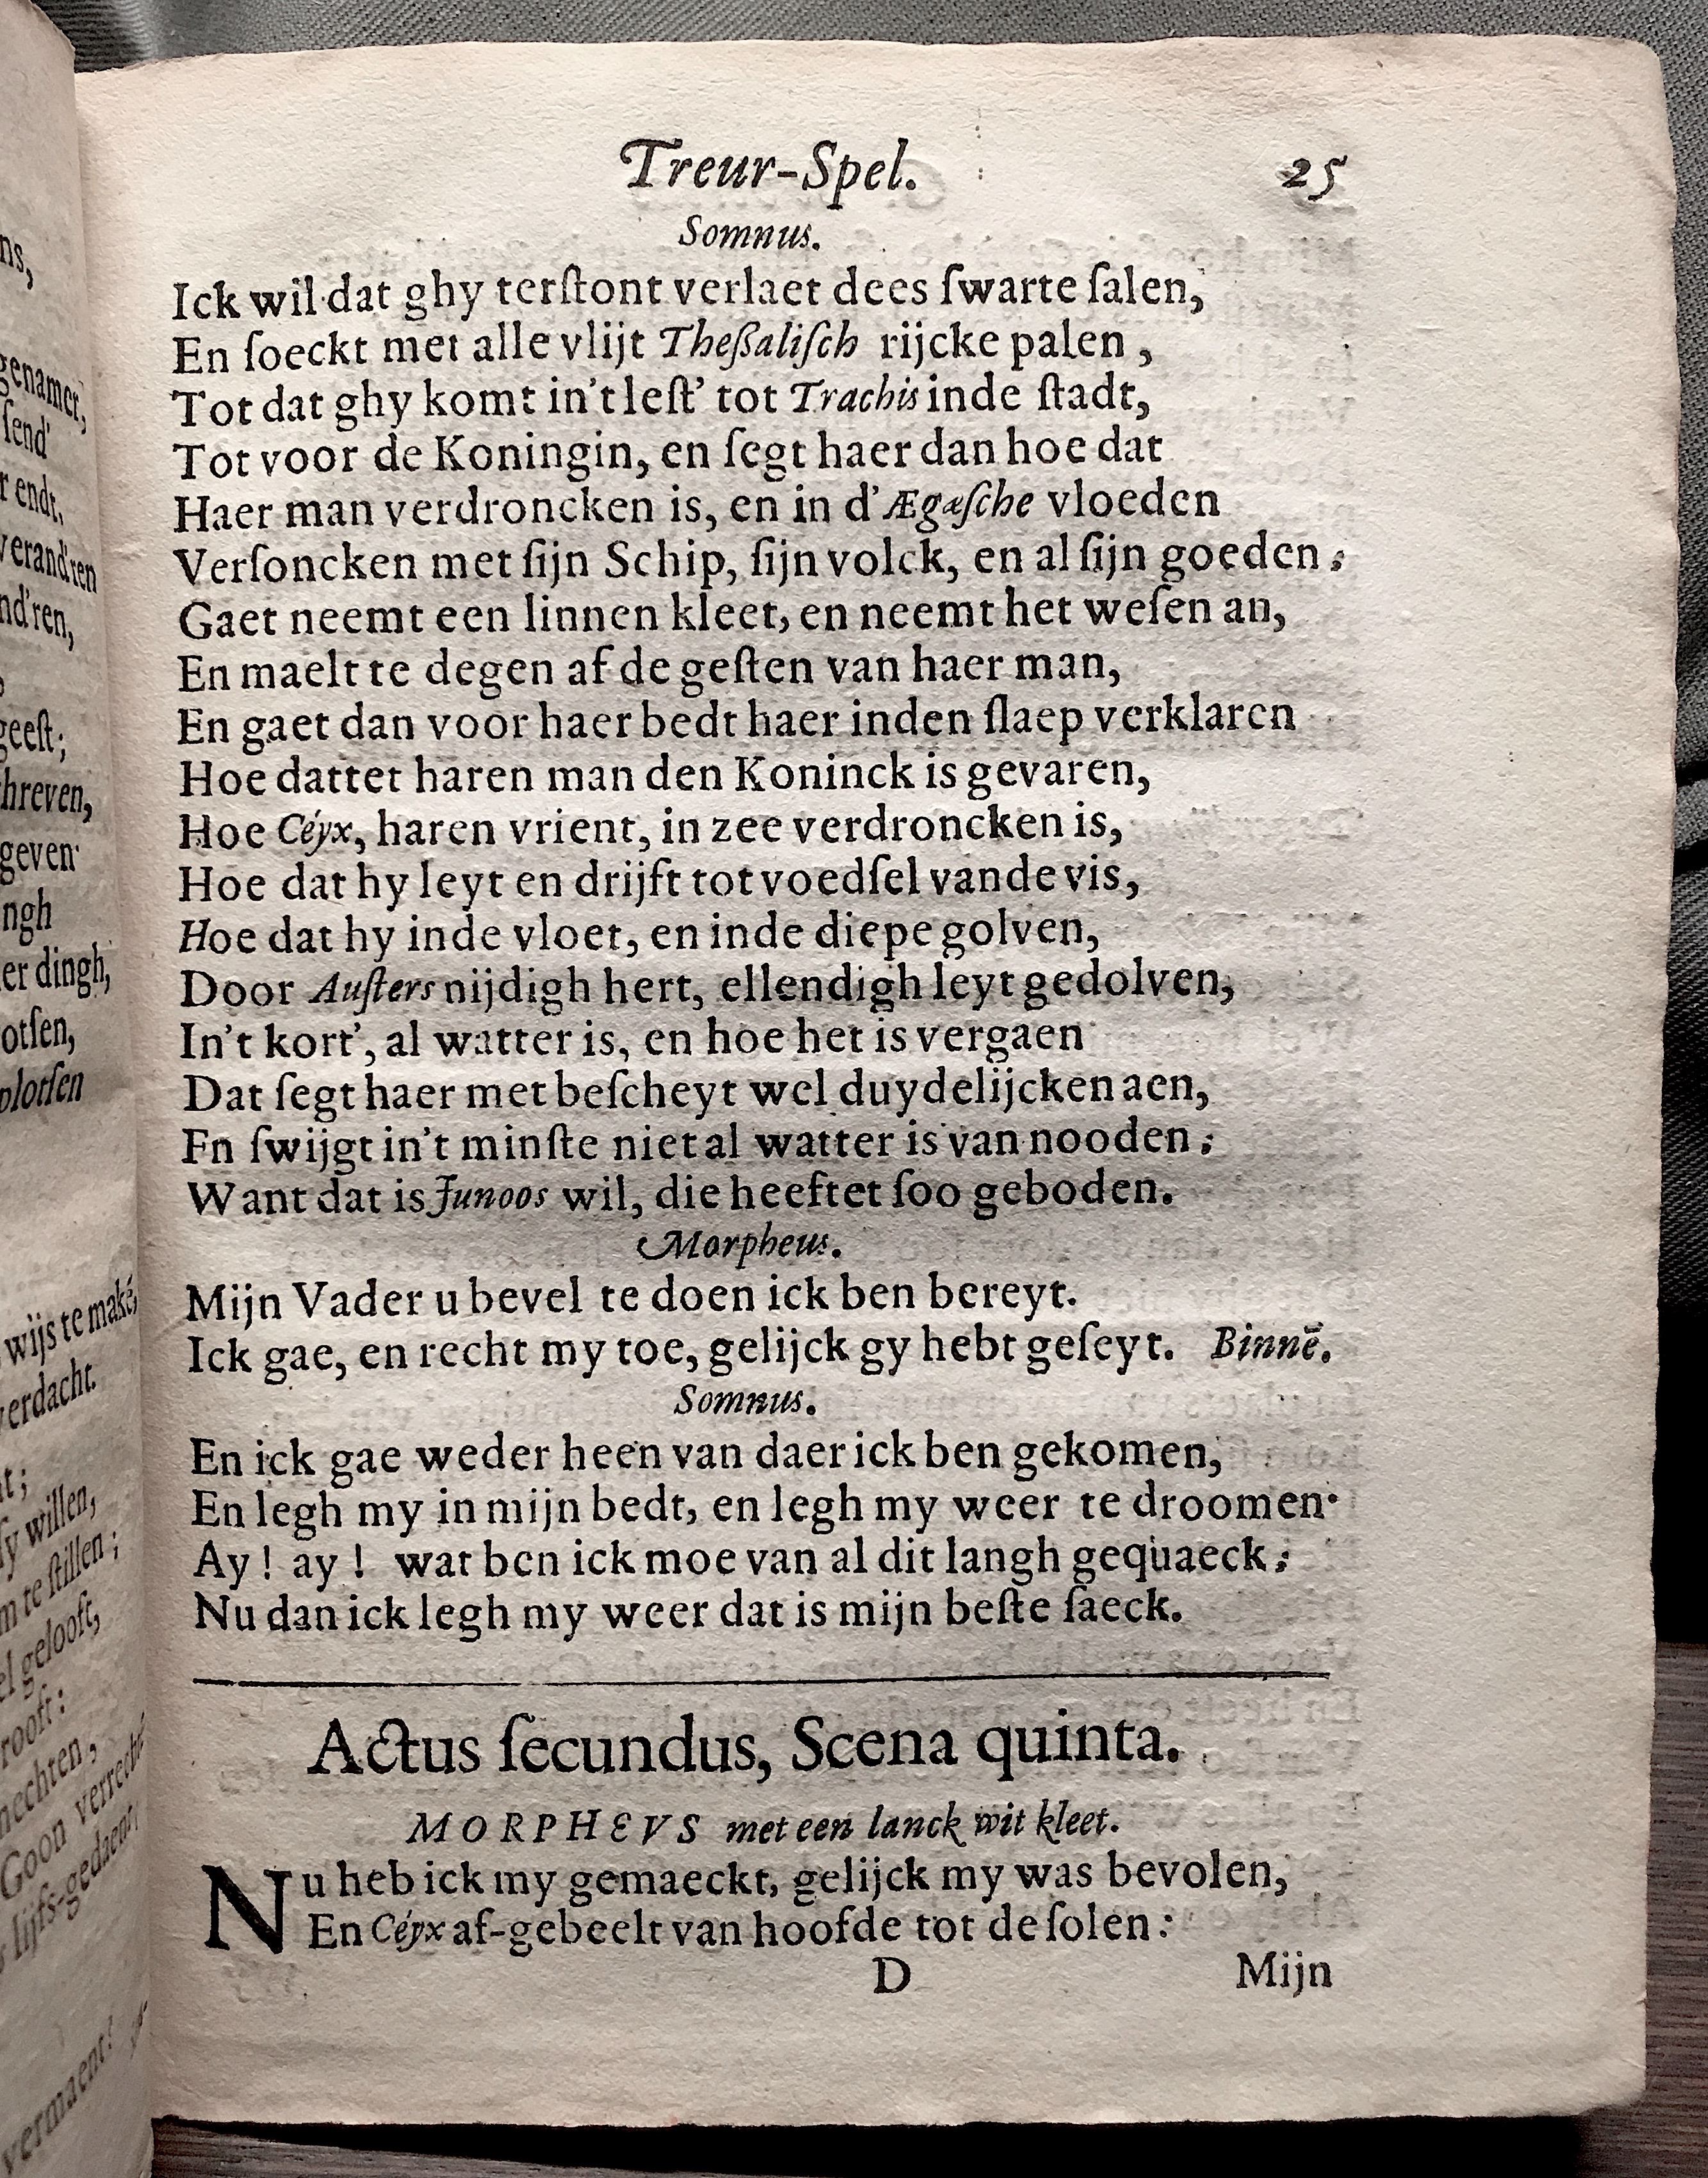 Treur-Spel. 25
Somnus.
Ick wil dat ghy terſtont verlaet dees ſwarte ſalen,
En ſoeckt met alle vlijt Theßaliſch rijcke palen,
Tot dat ghy komt in't leſt' tot Trachis inde ſtadt,
Tot voor de Koningin, en ſegt haer dan hoe dat
Haer man verdroncken is, en in d'Ægæſche vloeden
Verſoncken met ſijn Schip, ſijn volck, en al ſijn goeden;
Gaet neemt een linnen kleet, en neemt het weſen an,
En maelt te degen af de geſten van haer man,
En gaet dan voor haer bedt haer inden ſlaep verklaren
Hoe dattet haren man den Koninck is gevaren,
Hoe Céyx, haren vrient, in zee verdroncken is,
Hoe dat hy leyt en drijft tot voedſel vande vis,
Hoe dat hy inde vloet, en inde diepe golven,
Door Auſters nijdigh hert, ellendigh leyt gedolven,
In't kort', al watter is, en hoe het is vergaen
Dat ſegt haer met beſcheyt wel duydelijcken aen,
Fn ſwijgt in't minſte niet al watter is van nooden;
Want dat is Junoos wil, die heeftet ſoo geboden.
Morpheus.
Mijn Vader u bevel te doen ick ben bereyt.
Ick gae, en recht my toe, gelijck gy hebt geſeyt. Binnē.
Somnus.
En ick gae weder heen van daer ick ben gekomen,
En legh my in mijn bedt, en legh my weer te droomen·
Ay! ay! wat ben ick moe van al dit langh gequaeck;
Nu dan ick legh my weer dat is mijn beſte ſaeck.
Actus ſecundus, Scena quinta.
MORPHEVS met een lanck wit kleet.
Nu heb ick my gemaeckt, gelijck my was bevolen,
En Céyx af-gebeelt van hoofde tot de ſolen:
D Mijn